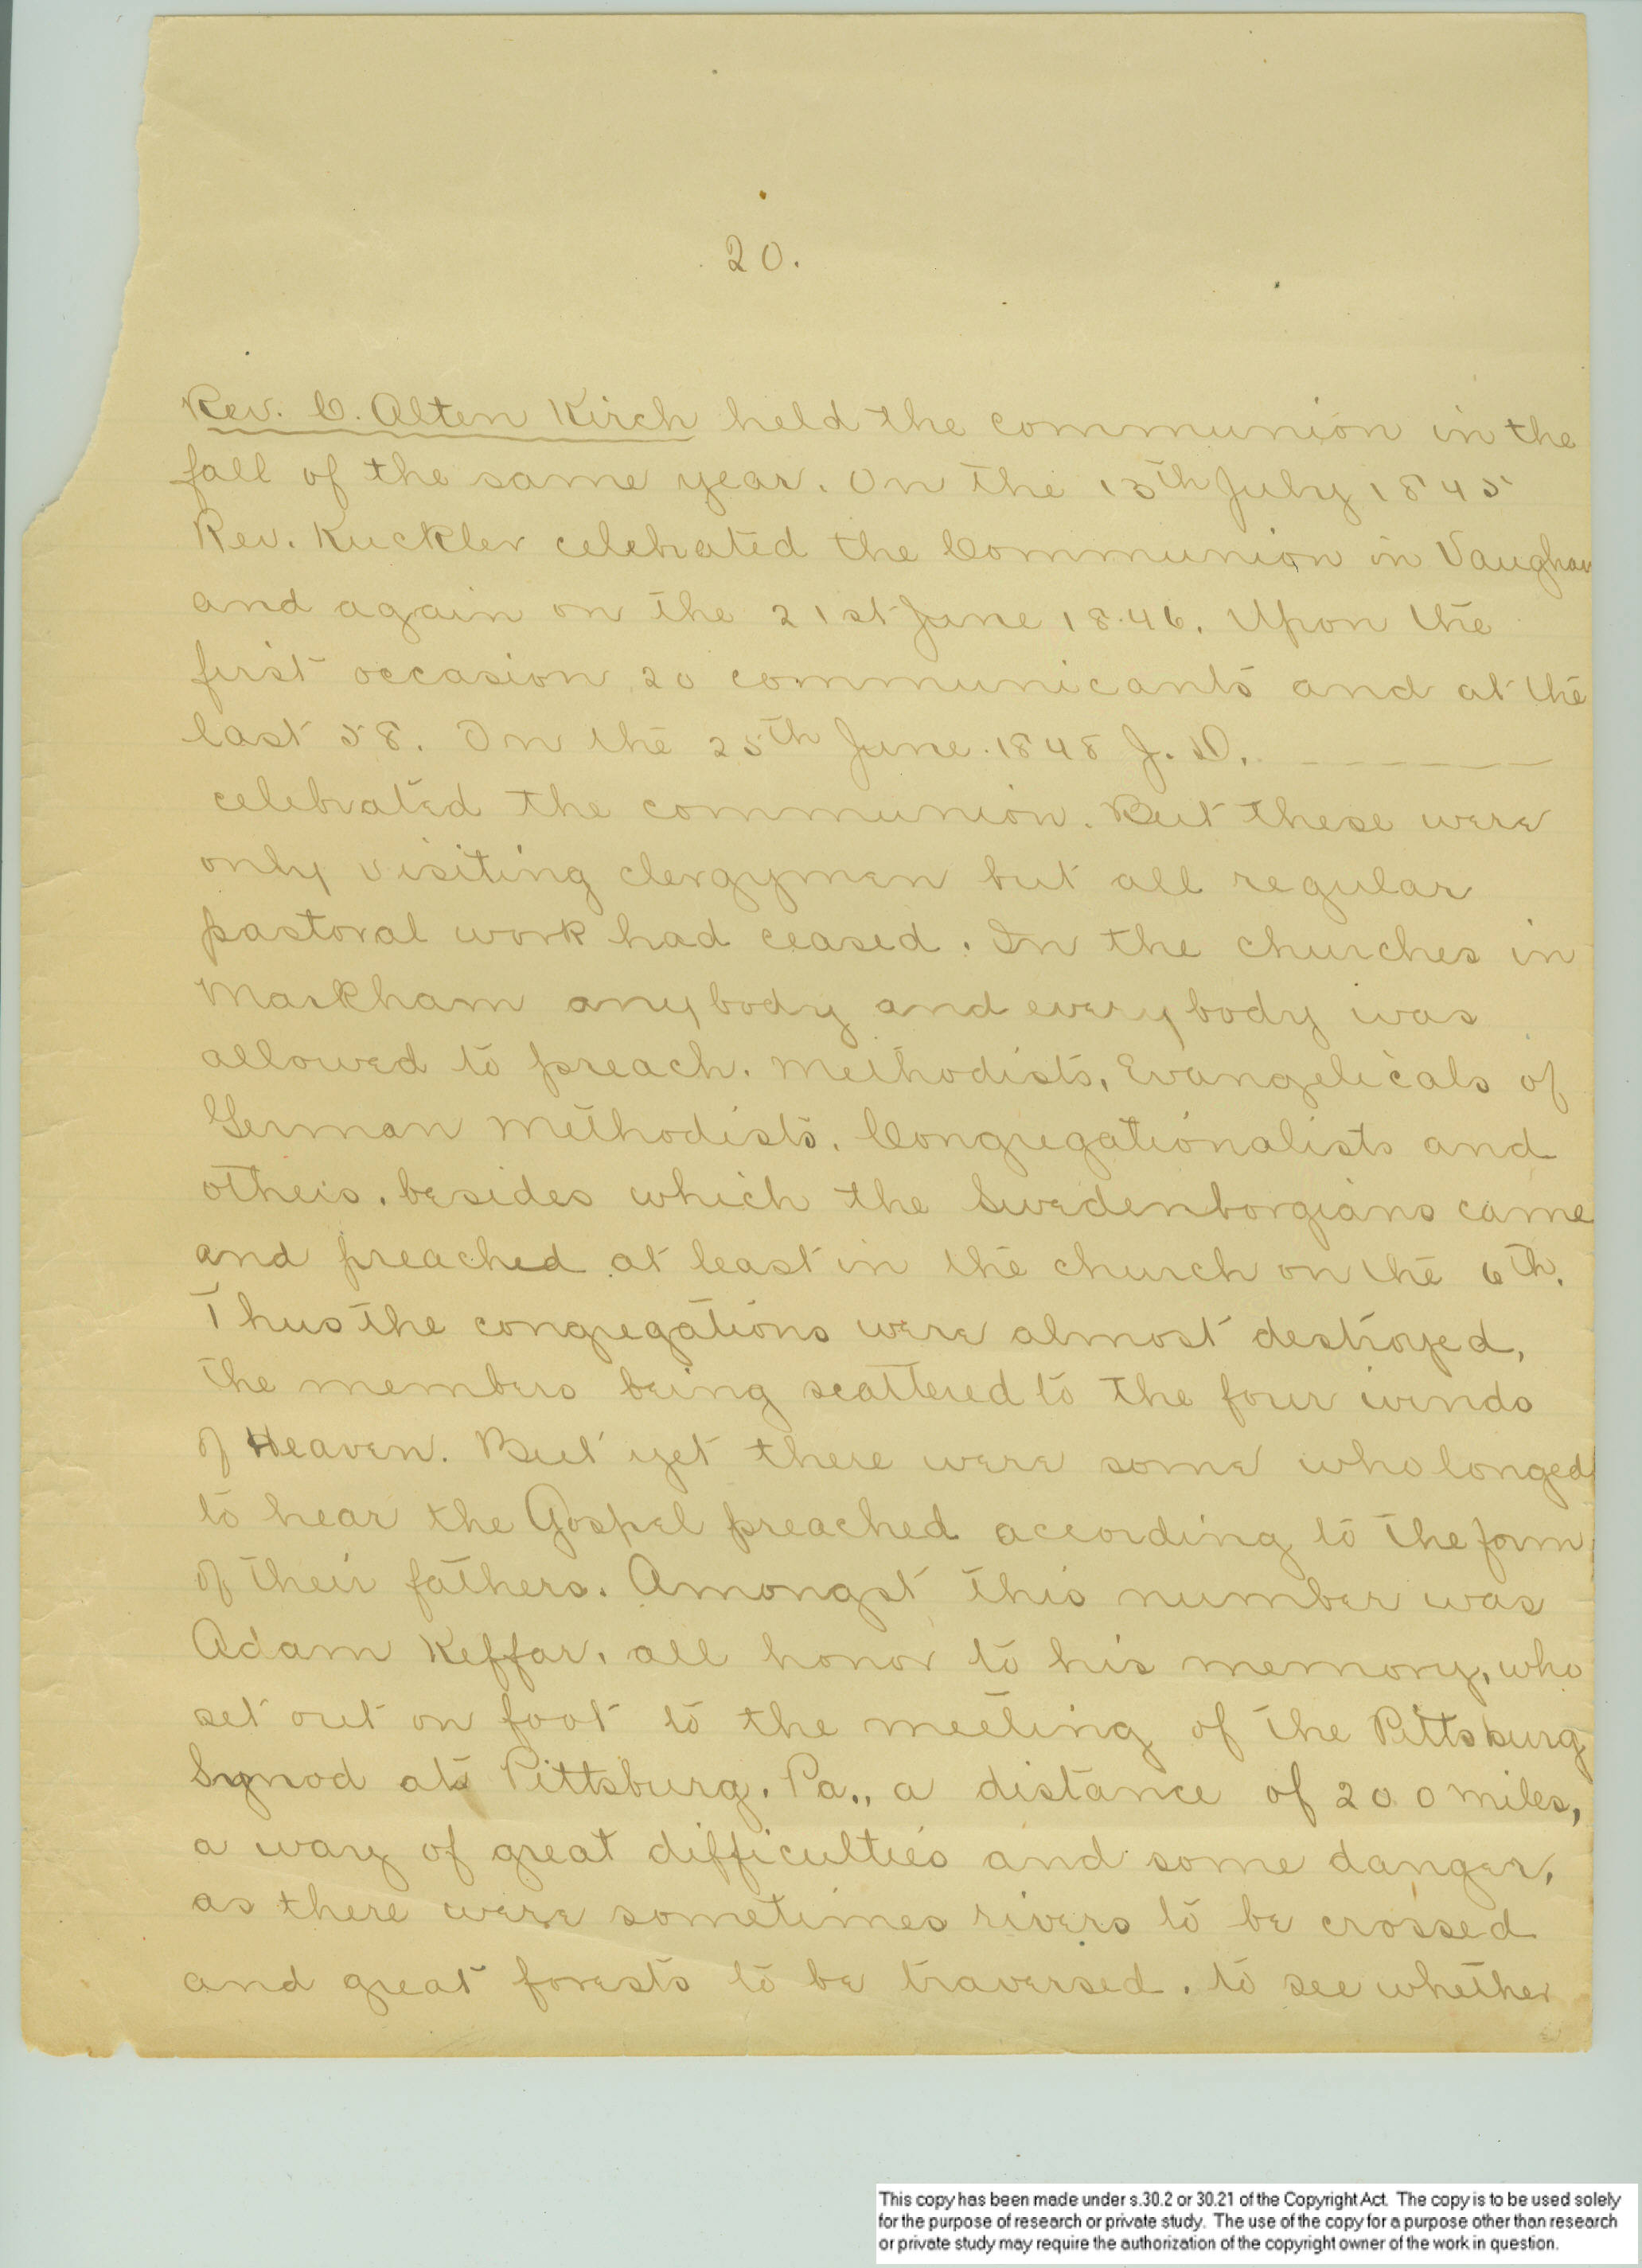 20.
Rev. C. Alten Kirch held the communion in the
fall of the same year. On the 13th July 1845
Rev. Kuckler celebrated the Communion in Vaughan
and again on the 21st June 1846. Upon the
first occasion 20 communicants and at the
last 58. On the 25th June 1848 J. D. _ _ _ _ _ _ _
celebrated the communion. But these were
only visiting clergymen but all regular
pastoral work had ceased. In the churches in
Markham anybody and everybody was
allowed to preach. Methodists, Evangelicals of
German Methodists, Congregationalists and
others, besides which the Swedenborgians came
and preached at least in the church on the 6th.
Thus the congregations were almost destroyed,
the members being scattered to the four winds
of Heaven. But yet there were some who longed
to hear the Gospel preached according to the form
of their fathers. Amongst this number was
Adam Keffar, all honor to his memory, who
set out on foot to the meeting of the Pittsburg
Synod at Pittsburg, Pa., a distance of 200 miles,
a way of great difficulties and some danger,
as there were sometimes rivers to be crossed
and great forests to be traversed, to see whether
This copy has been made under s.30.2 or 30.21 of the Copyright Act. The copy is to be used solely
for the purpose of research or private study. The use of the copy for a purpose other than research
or private study may require the authorization of the copyright owner of the work in question.